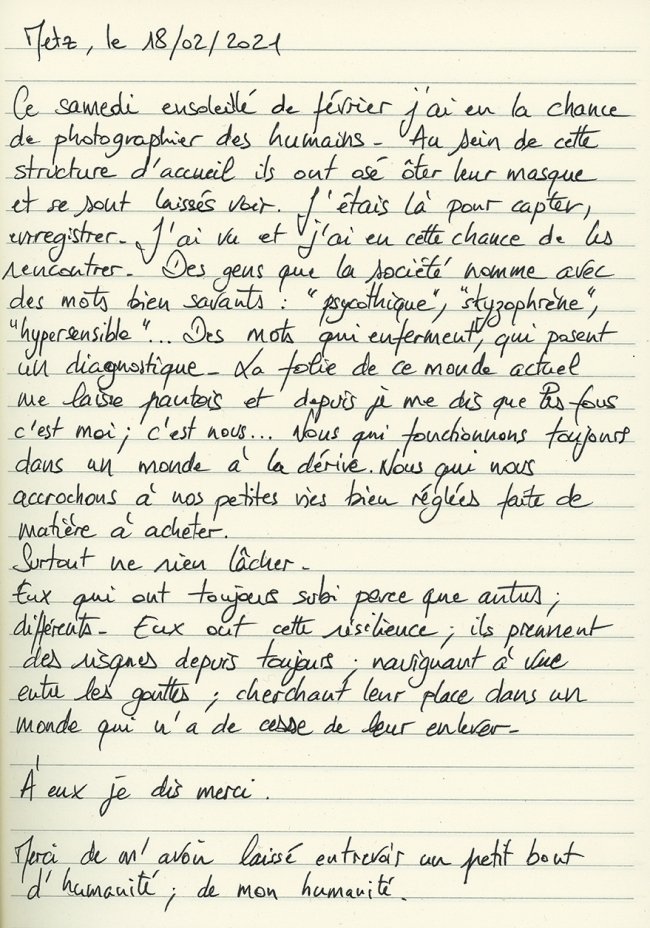 Metz, le 18/02/2021
Ce samedi ensoleillé de février j'ai eu la chance
de photographier des humains. Au sein de cette
structure d'accueil ils ont osé ôter leur masque
et se sont laissés voir. J'étais là pour capter,
enregistrer. J'ai vu et j'ai eu cette chance de les
rencontrer. Des gens que la société nomme avec
des mots bien savants : "psycothique", "skyzophrène",
"hypersensible"... Des mots qui enferment, qui posent
un diagnostique. La folie de ce monde actuel
me laisse pantois et depuis je me dis que les fous
c'est moi ; c'est nous... Nous qui fonctionnons toujours
dans un monde à la dérive. Nous qui nous
accrochons à nos petites vies bien réglées faite de
matière à acheter.
Surtout ne rien lâcher.
Eux qui ont toujours subi parce que autres ;
différents. Eux ont cette résilience ; ils prennent
des risques depuis toujours ; naviguant à vue
entre les gouttes ; cherchant leur place dans un
monde qui n'a de cesse de leur enlever.
À eux je dis merci.
Merci de m'avoir laissé entrevoir un petit bout
d'humanité ; de mon humanité.